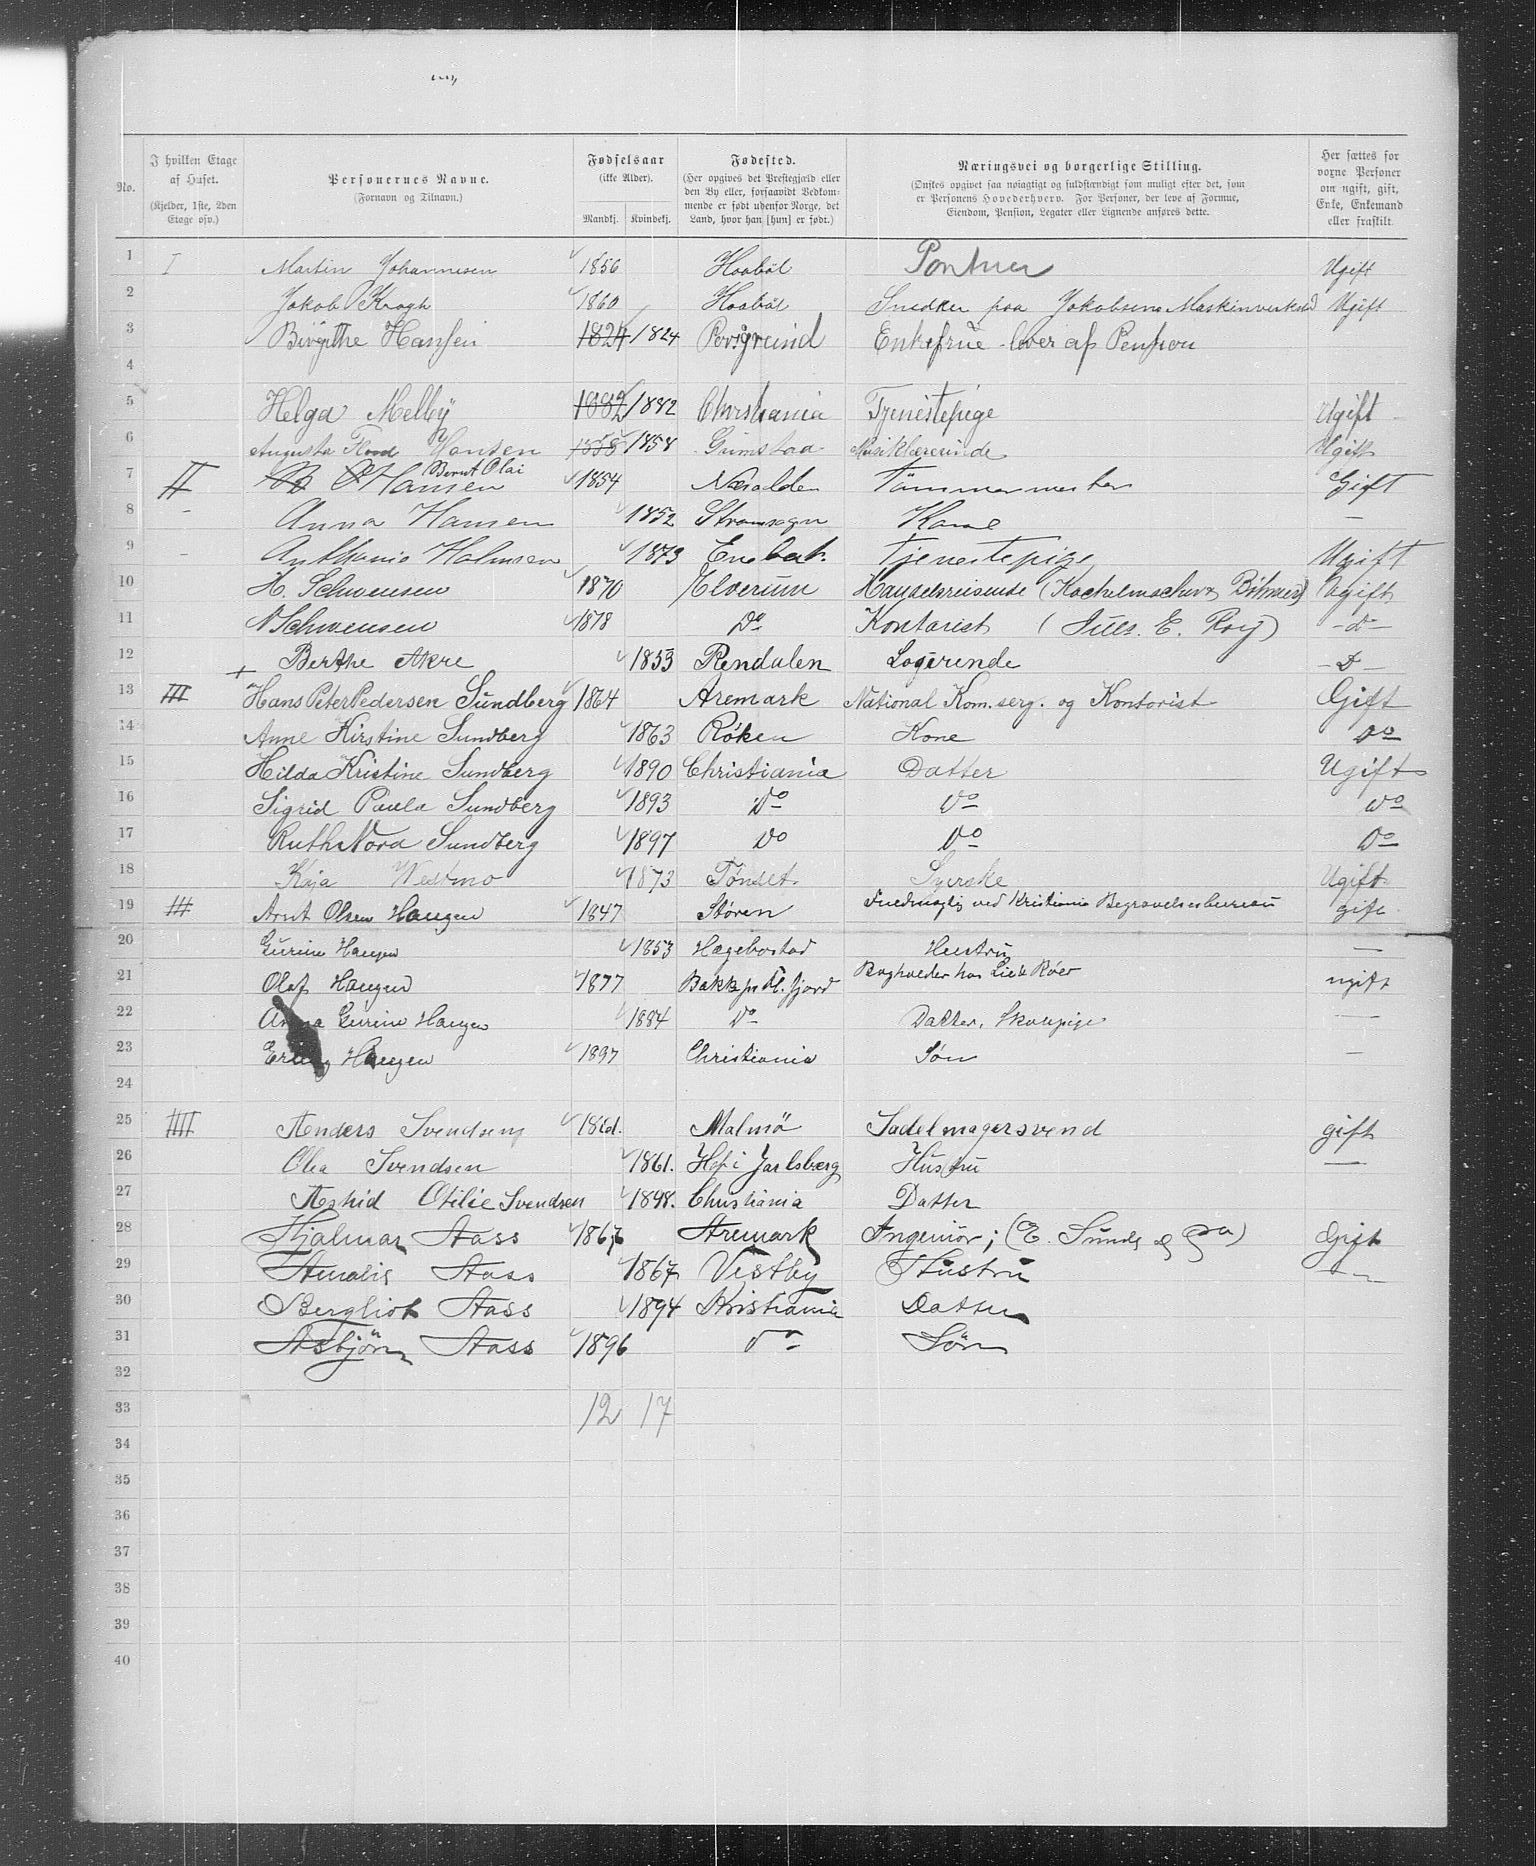 No.
I hvilken Etage af Huset.
(Kjelder, 1ste, 2den Etage osv.)
Personernes Navne.
(Fornavn og Tilnavn.)
Fødselsaar
(ikke Alder).
Mandkj. Kvindekj.
Fødested.
(Her opgives det Prestegjæld eller den By eller, forsaavidt Vedkommende er født udenfor Norge, det Land, hvor han [hun] er født.)
Næringsvei og borgerlige Stilling.
(Ønskes opgivet saa nøiagtigt og fuldstændigt som muligt efter det, som er Personens Hovederhverv. For Personer, der leve af Formue, Eiendom, Pension, Legater eller Lignende anføres dette.
Her sættes for voxne Personer om ugift, gift, Enke, Enkemand eller fraskilt.
1 I Martin Johannesen 1856 Haabøl Portner Ugift
2 Jakob Kragh 1860 Haabøl Snedker paa Jakobsens Maskinverksted Ugift
3 Birgithe Hansen 1824 1824 Porsgrund Enkefrue lever af Pension
4
5 Helga Melby 1882 1882 Christiania Tjenestepige Ugift
6 Augusta Flood Hansen 1858 1858 Grimstad Musiklærerinde Ugift
7 II Bernt Olai Hansen 1854 Næsodden Tømmermester Gift
8 - Anna Hansen 1852 Strømsogn Kone —
9 - Anthonie Holmsen 1873 Enebak. Tjenestepige Ugift
10 H. Schwensen 1870 Elverum Handelsreisende Ugift
11 N Schwensen 1878 Do Kontorist (Juls. E. Roy) - d -
12 Berthe Akre 1853 Rendalen Logerende - D -
13 III Hans Peter Pedersen Sundberg 1864 Aremark National Kom. serg. og Kontorist Gift
14 Anne Kirstine Sundberg 1863 Røken Kone Do
15 Hilda Kristine Sundberg 1890 Christiania Datter Ugift
16 Sigrid Paula Sundberg 1893 Do Do Do
17 Ruth Nora Sundberg 1897 Do Do Do
18 Kaja Westmo 1873 Tønset Syerske Ugift
19 III Arnt Olsen Haugen 1847 Støren Fuldmægtig ved Kristiania Begravelsesbureau gift
20 Gurine Haugen 1853 Hægebostad Hustru —
21 Olaf Haugen 1877 Bogholder hos ugift
22 Anna Gurine Haugen 1884 Do Datter, Skolepige —
23 Erling Haugen 1897 Christiania Søn —
24
25 IIII Anders Svendsen 1861. Malmö Sadelmagersvend gift
26 Olea Svendsen 1861. Hof i Jarlsberg Hustru —
27 Astrid Otilie Svendsen 1898. Christiania Datter
28 Hjalmar Aass 1867 Aremark Ingeniør; (E. Sunds & Gift
29 Amalie Aass 1867 Vestby Hustru —
30 Bergliot Aass 1894 Kristiania Datter
31 Asbjörn Aass 1896 Do Sön
32
33 12 17
34
35
36
37
38
39
40